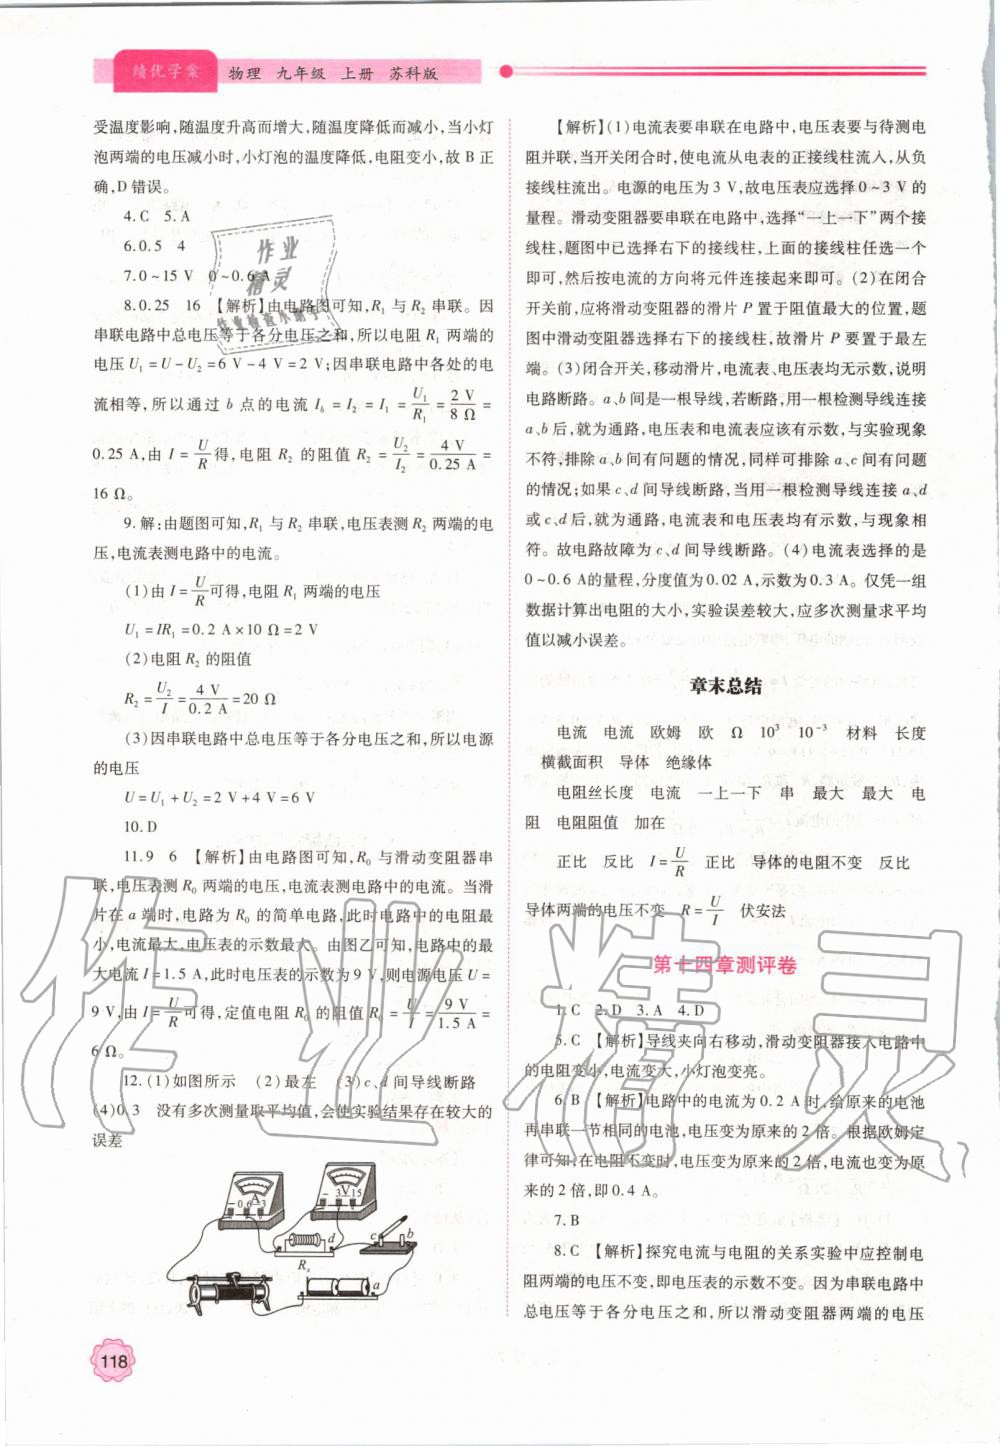 绩优学案 物理 九年级 上册 苏科版
受温度影响,随温度升高而增大,随温度降低而减小,当小灯
泡两端的电压减小时,小灯泡的温度降低,电阻变小,故 B 正
确,D 错误。
4.C 5.A
6.0.5 4
7.0~15 V 0~0.6 A
8.0.25 16 【解析】由电路图可知,R₁ 与 R₂ 串联。因
串联电路中总电压等于各分电压之和,所以电阻 R₁ 两端的
电压 U₁=U-U₂=6 V-4 V=2 V;因串联电路中各处的电
流相等,所以通过 b 点的电流 I_b=I₂=I₁=U₁/R₁=2 V/8 Ω=
0.25 A,由 I=U/R得,电阻 R₂ 的阻值 R₂=U₂/I₂=4 V/0.25 A=
16 Ω。
9.解:由题图可知,R₁ 与 R₂ 串联,电压表测 R₂ 两端的电
压,电流表测电路中的电流。
(1)由 I=U/R可得,电阻 R₁ 两端的电压
U₁=IR₁=0.2 A×10 Ω=2 V
(2)电阻 R₂ 的阻值
R₂=U₂/I=4 V/0.2 A=20 Ω
(3)因串联电路中总电压等于各分电压之和,所以电源
的电压
U=U₁+U₂=2 V+4 V=6 V
10.D
11.9 6 【解析】由电路图可知,R₀ 与滑动变阻器串
联,电压表测 R₀ 两端的电压,电流表测电路中的电流。当滑
片在 a 端时,电路为 R₀ 的简单电路,此时电路中的电阻最
小,电流最大,电压表的示数最大。由图乙可知,电路中的最
大电流 I=1.5 A,此时电压表的示数为 9 V,则电源电压 U=
9 V,由 I=U/R可得,定值电阻 R₀ 的阻值 R₀=U/I=9 V/1.5 A=
6 Ω。
12.(1)如图所示 (2)最左 (3)c、d 间导线断路
(4)0.3 没有多次测量取平均值,会使实验结果存在较大的
误差
- 0.6 3
A
- 3 15
V
Rₓ
d
c
b
a
118
【解析】(1)电流表要串联在电路中,电压表要与待测电
阻并联,当开关闭合时,使电流从电表的正接线柱流入,从负
接线柱流出。电源的电压为 3 V,故电压表应选择 0~3 V 的
量程。滑动变阻器要串联在电路中,选择“一上一下”两个接
线柱,题图中已选择右下的接线柱,上面的接线柱任选一个
即可,然后按电流的方向将元件连接起来即可。(2)在闭合
开关前,应将滑动变阻器的滑片 P 置于阻值最大的位置,题
图中滑动变阻器选择右下的接线柱,故滑片 P 要置于最左
端。(3)闭合开关,移动滑片,电流表、电压表均无示数,说明
电路断路。a、b 间是一根导线,若断路,用一根检测导线连接
a、b 后,就为通路,电压表和电流表应该有示数,与实验现象
不符,排除 a、b 间有问题的情况,同样可排除 a、c 间有问题
的情况;如果 c、d 间导线断路,当用一根检测导线连接 a、d
或 c、d 后,就为通路,电流表和电压表均有示数,与现象相
符。故电路故障为 c、d 间导线断路。(4)电流表选择的是
0~0.6 A的量程,分度值为 0.02 A,示数为 0.3 A。仅凭一组
数据计算出电阻的大小,实验误差较大,应多次测量求平均
值以减小误差。
章末总结
电流 电流 欧姆 欧 Ω 10³ 10⁻³ 材料 长度
横截面积 导体 绝缘体
电阻丝长度 电流 一上一下 串 最大 最大 电
阻 电阻阻值 加在
正比 反比 I=U/R 正比 导体的电阻不变 反比
导体两端的电压不变 R=U/I 伏安法
第十四章测评卷
1.C 2.D 3.A 4.D
5.C 【解析】导线夹向右移动,滑动变阻器接入电路中
的电阻变小,电流变大,小灯泡变亮。
6.B 【解析】电路中的电流为 0.2 A 时,给原来的电池
再串联一节相同的电池,电压变为原来的 2 倍。根据欧姆定
律可知:在电阻不变时,电压变为原来的 2 倍,电流也变为原
来的 2 倍,即 0.4 A。
7.B
8.C 【解析】探究电流与电阻的关系实验中应控制电
阻两端的电压不变,即电压表的示数不变。因为串联电路中
总电压等于各分电压之和,所以滑动变阻器两端的电压
作业精灵
作业
精灵
作业检查小助手